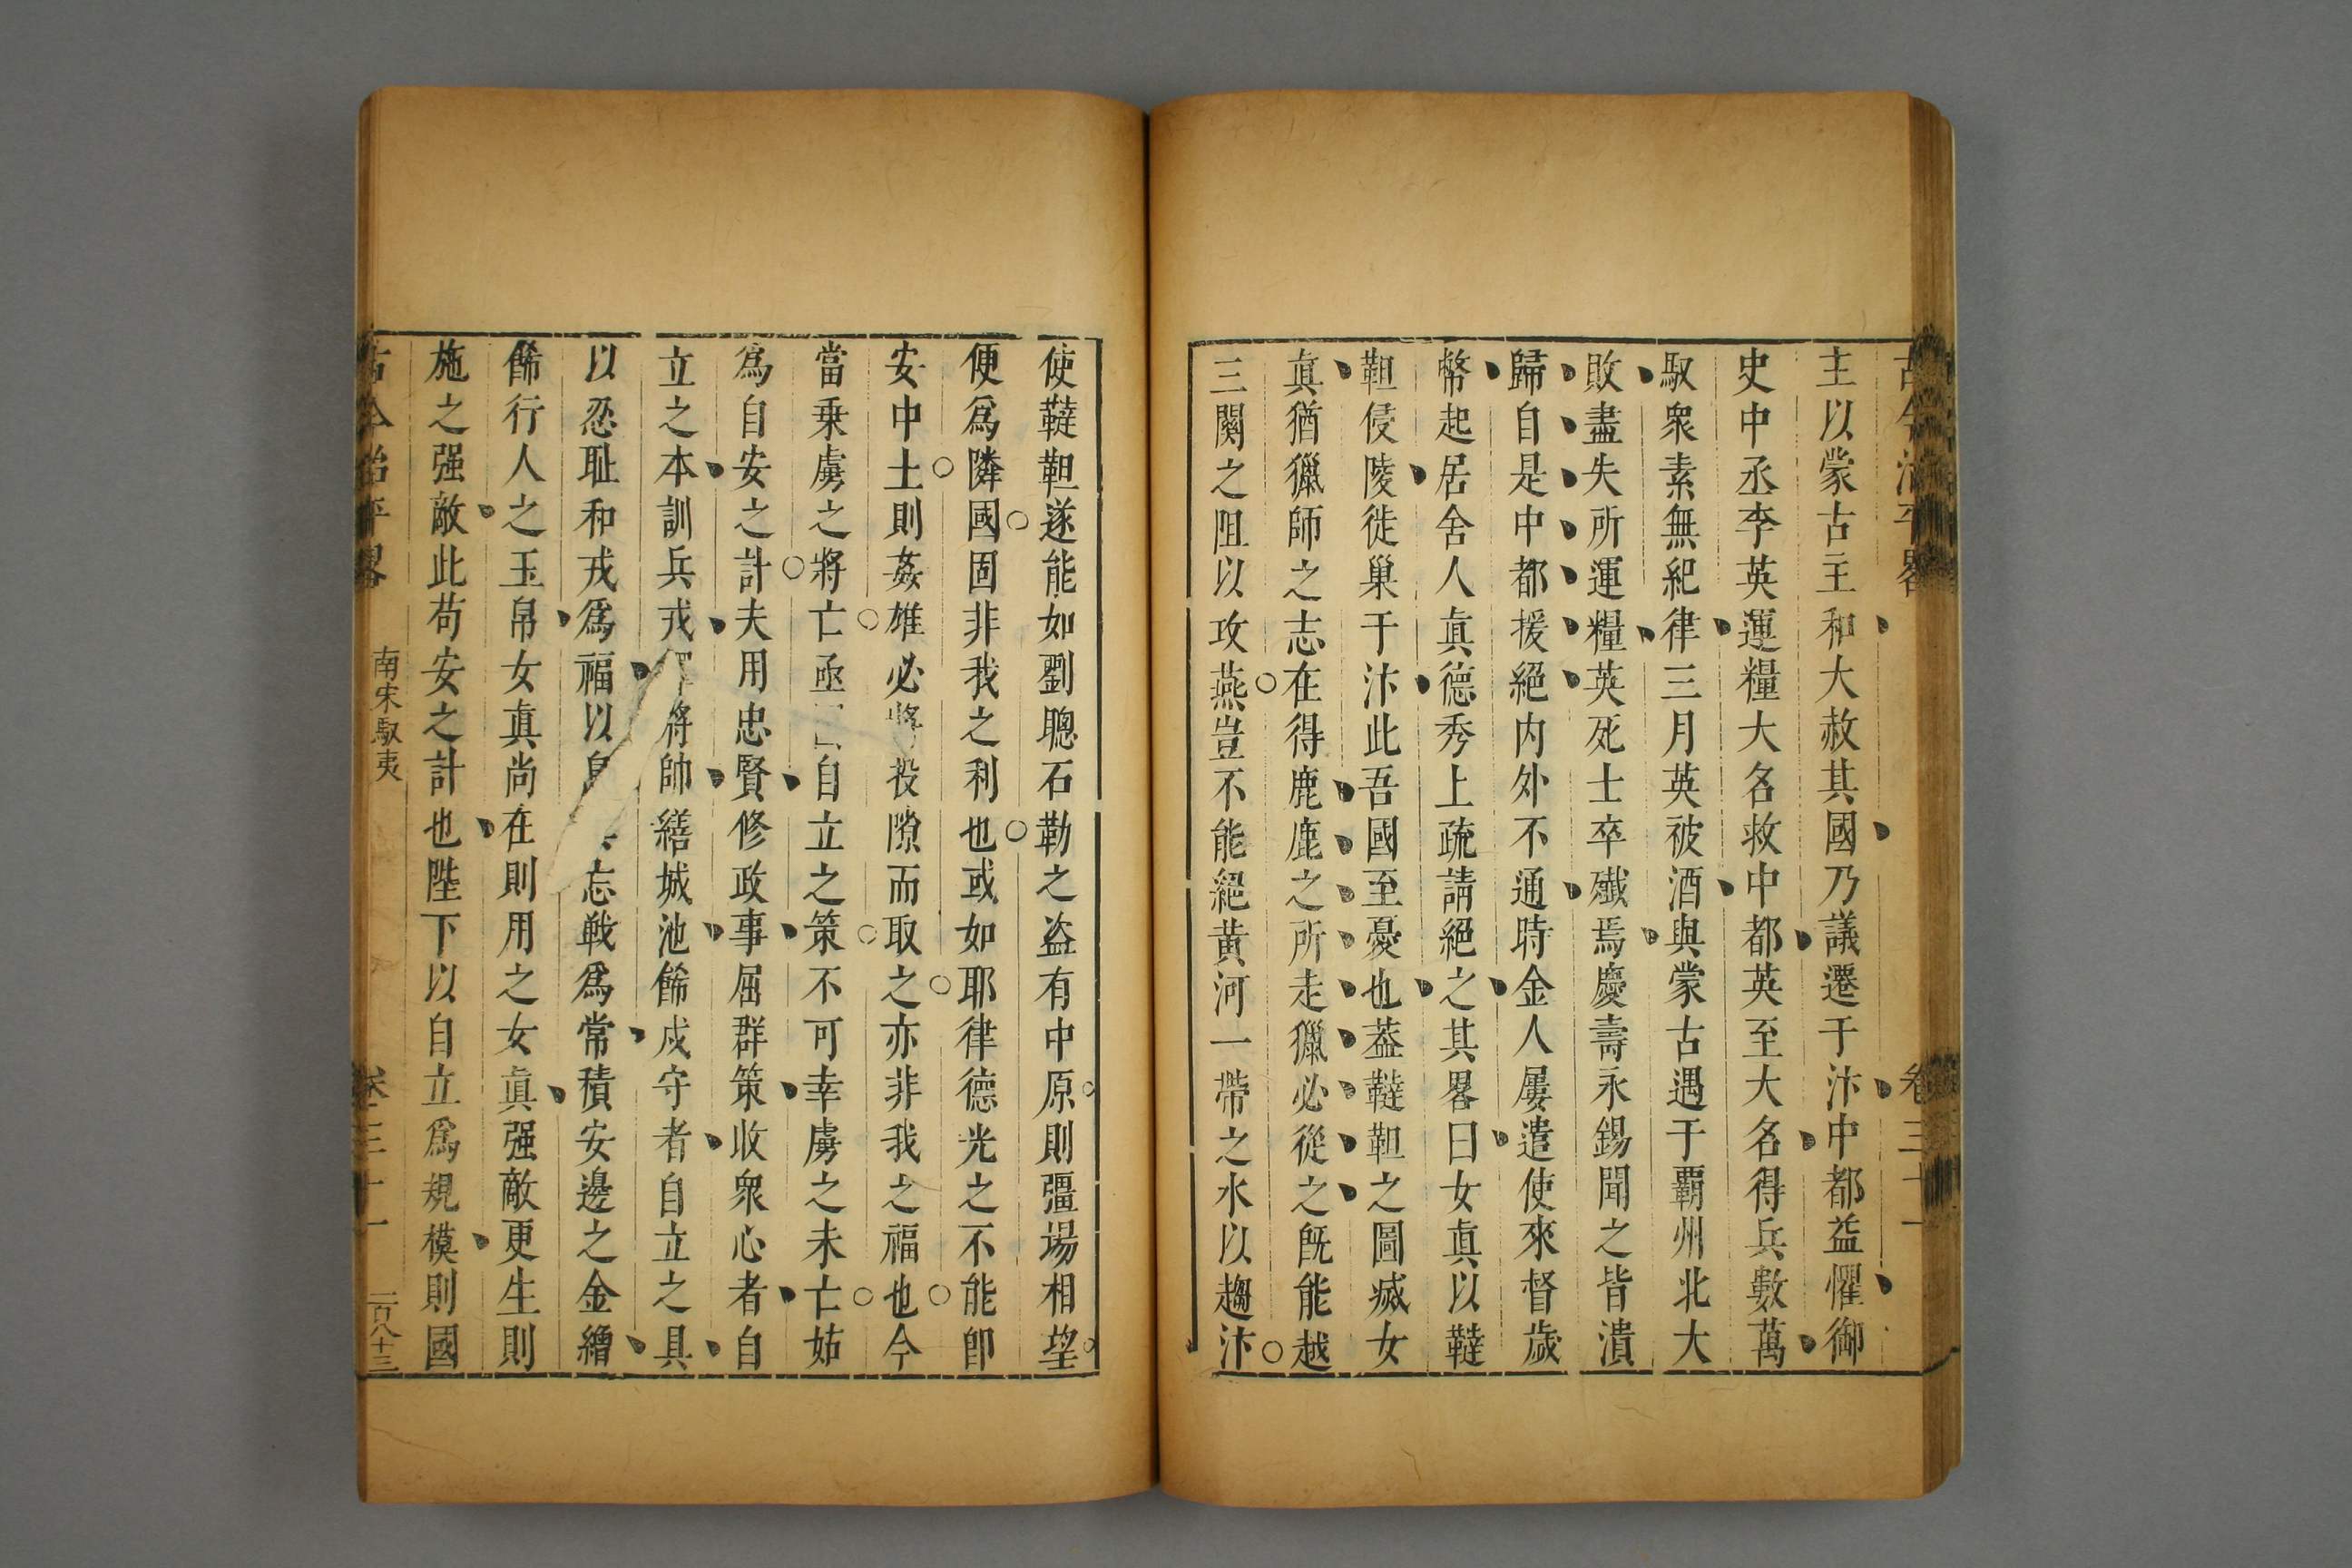 古今治平畧 卷三十一
主以蒙古主和大赦其國乃議遷于汴中都益懼御
史中丞李英運糧大名救中都英至大名得兵數萬
馭衆素無紀律三月英被酒與蒙古遇于霸州北大
敗盡失所運糧英死士卒殲焉慶壽永錫聞之皆潰
歸自是中都援絕内外不通時金人屢遣使來督歲
幣起居舍人真德秀上疏請絕之其畧曰女真以韃
靼侵陵徙巢于汴此吾國至憂也蓋韃靼之圖滅女
真猶獵師之志在得鹿鹿之所走獵必從之旣能越
三關之阻以攻燕豈不能絕黃河一帶之水以趨汴
使韃靼遂能如劉聰石勒之盗有中原則彊埸相望
便爲隣國固非我之利也或如耶律德光之不能卽
安中土則姦雄必將投隙而取之亦非我之福也今
當乗虜之將亡亟自立之策不可幸虜之未亡姑
爲自安之計夫用忠賢修政事屈群策收衆心者自
立之本訓兵戎將帥繕城池餙戍守者自立之具
以忍耻和戎爲福以忘戦爲常積安邊之金繒
餙行人之玉帛女真尚在則用之女真强敵更生則
施之强敵此苟安之計也陛下以自立爲規模則國
古今治平畧 南宋馭夷 卷三十一 一百八十三